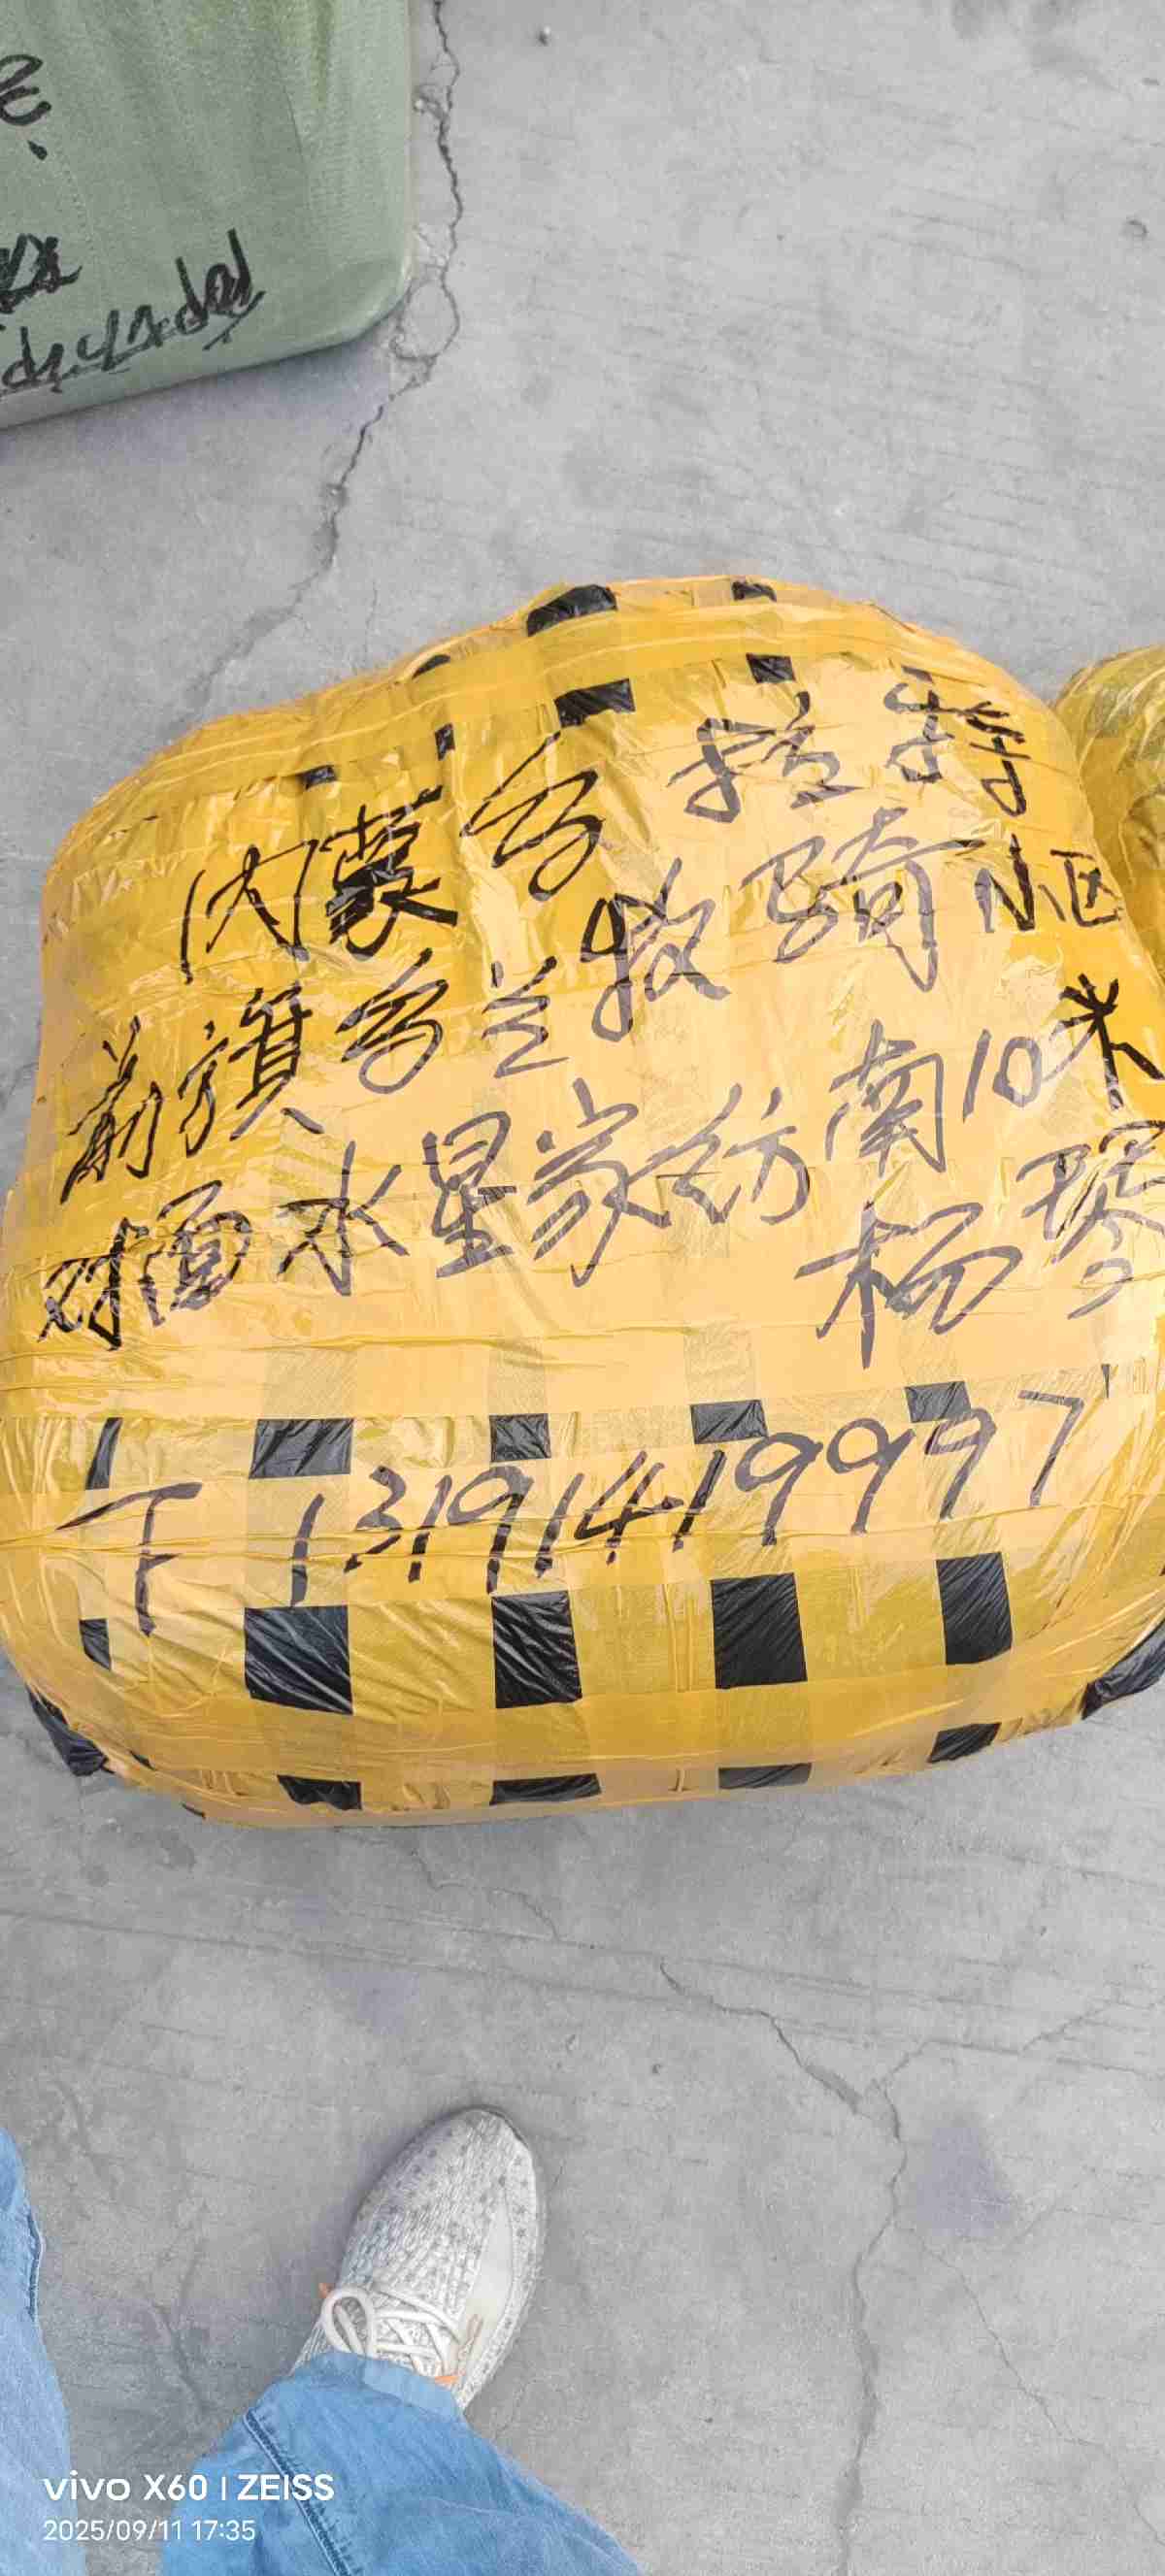 内蒙乌拉特
前旗乌兰牧骑小区
对面水星家纺南10米
杨
T 13191419997
vivo X60 | ZEISS
2025/09/11 17:35